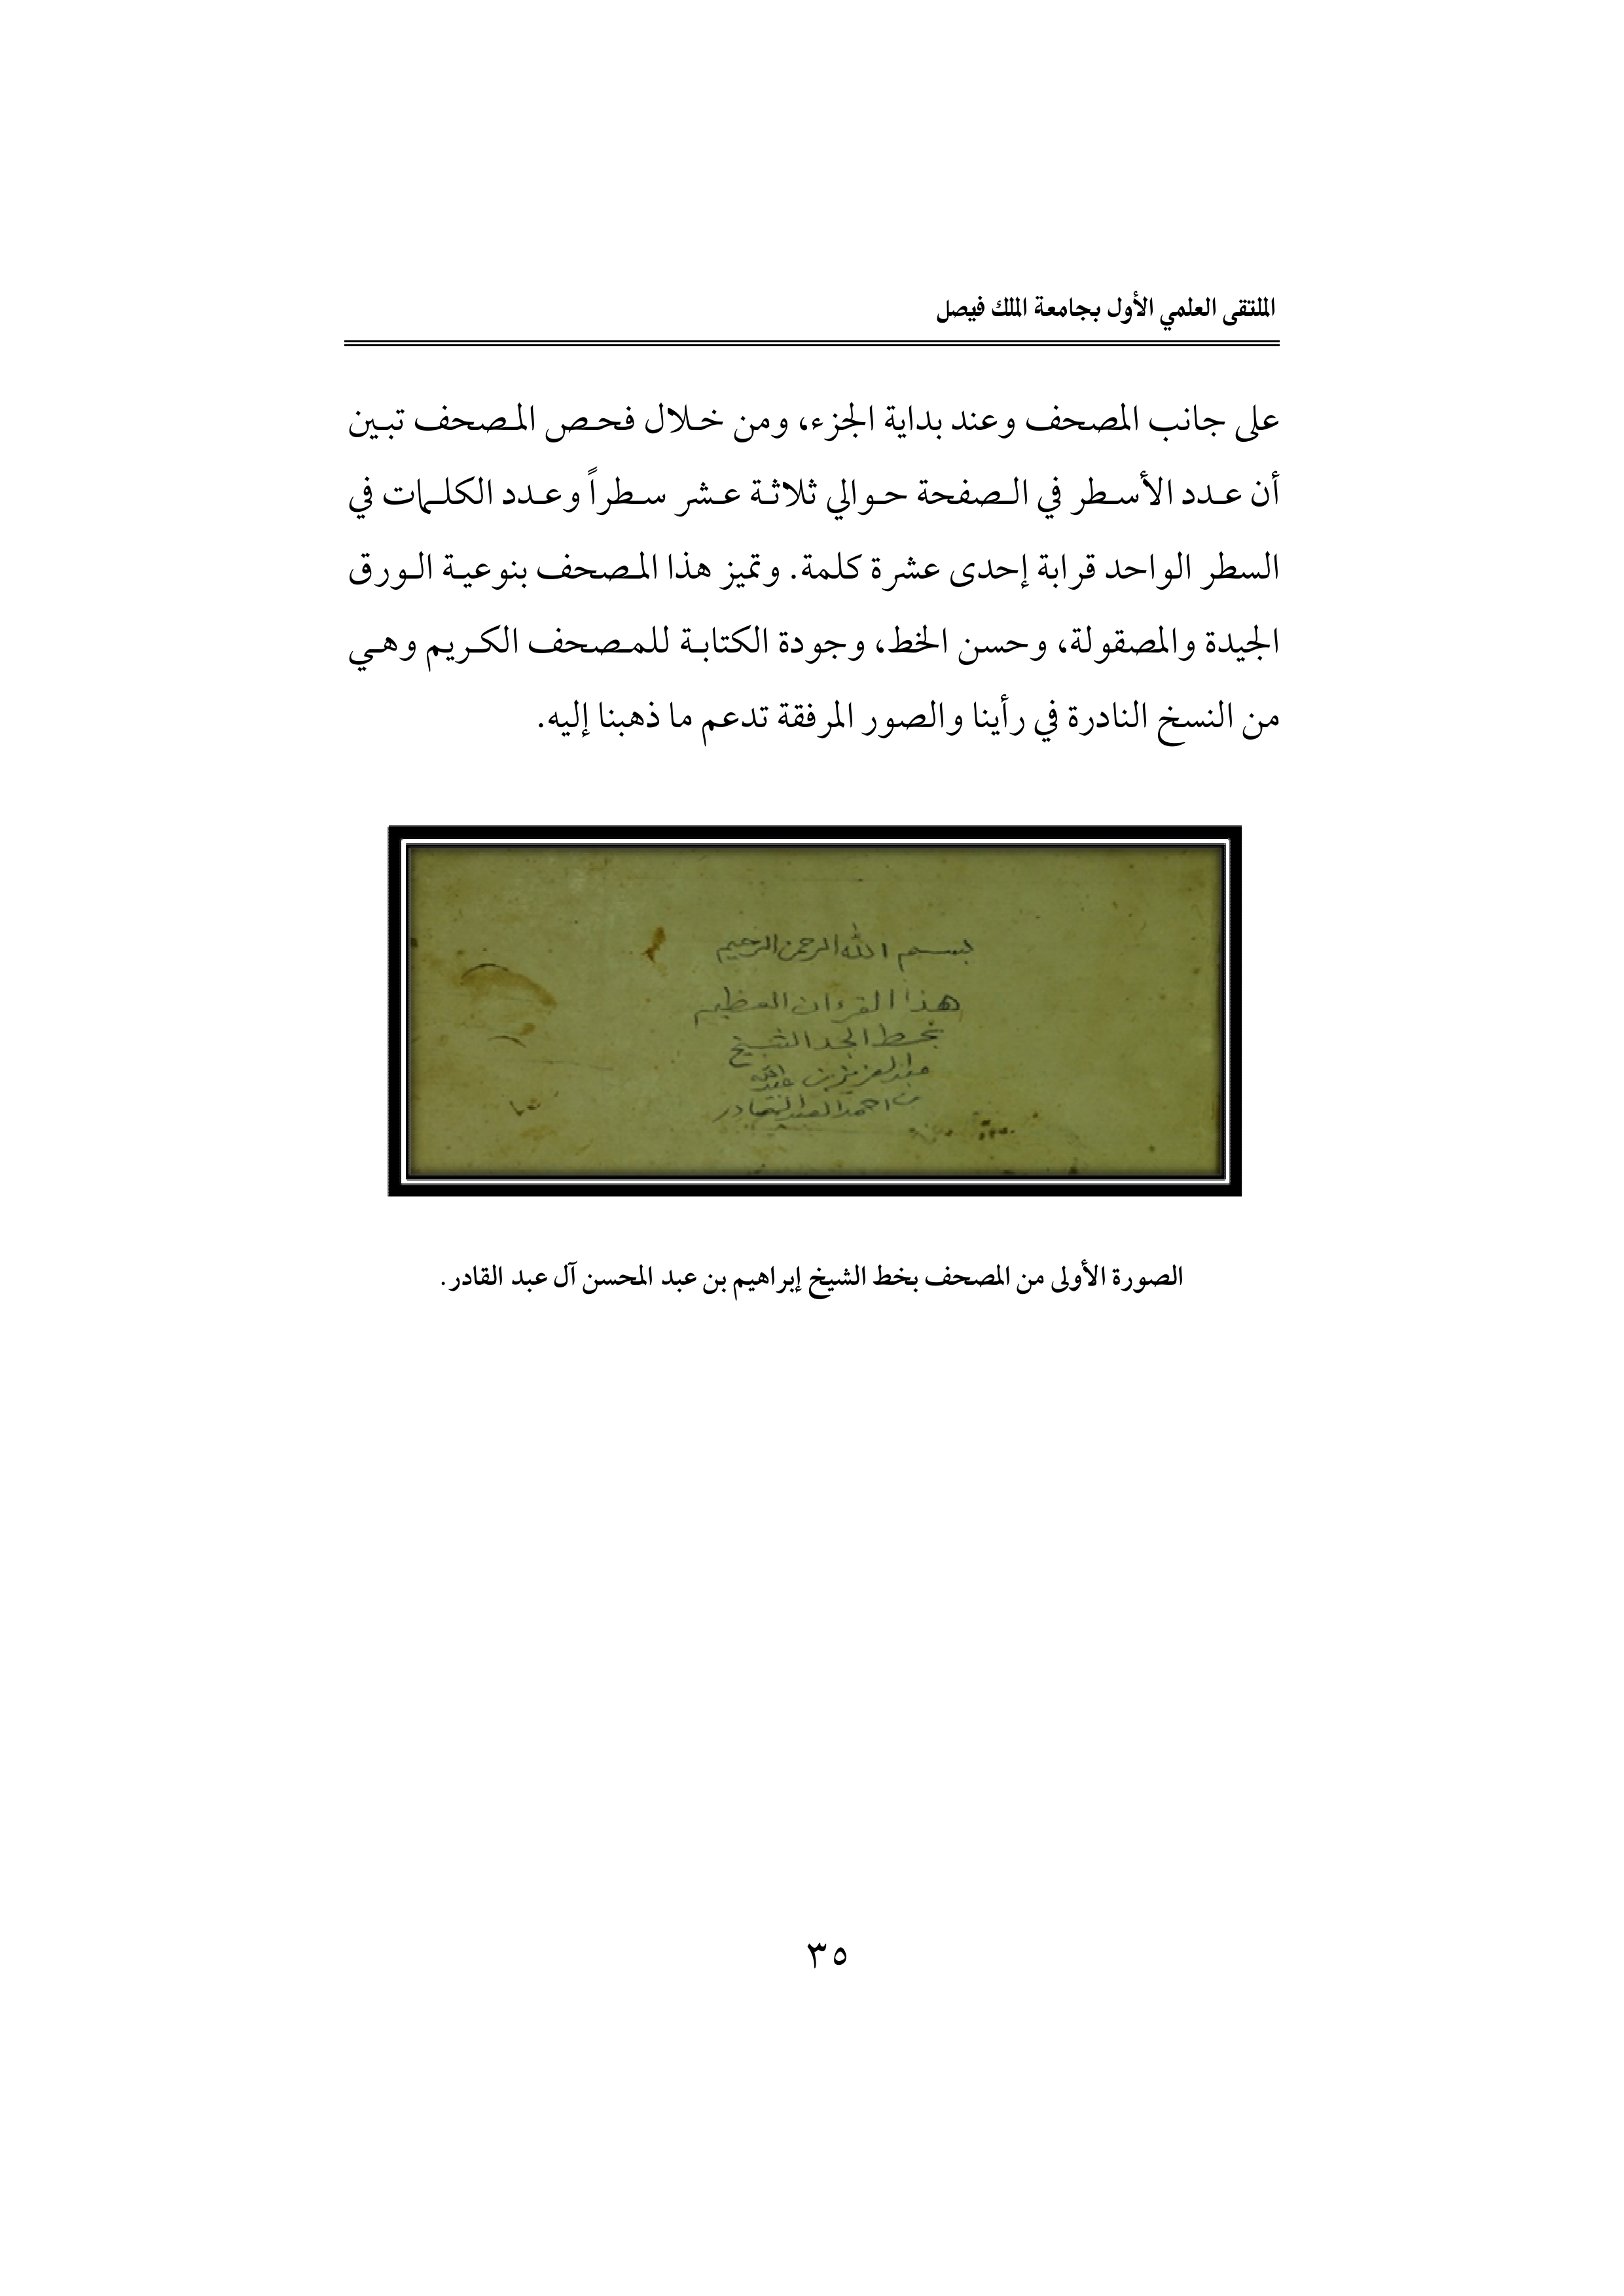 الملتقى العلمي الأول بجامعة الملك فيصل
على جانب المصحف وعند بداية الجزء، ومن خلال فحص المصحف تبين
أن عدد الأسطر في الصفحة حوالي ثلاثة عشر سطراً وعدد الكلمات في
السطر الواحد قرابة إحدى عشرة كلمة. وتميز هذا المصحف بنوعية الورق
الجيدة والمصقولة، وحسن الخط، وجودة الكتابة للمصحف الكريم وهي
من النسخ النادرة في رأينا والصور المرفقة تدعم ما ذهبنا إليه.
بسم الله الرحمن الرحيم
هذا القرءان العظيم
بخط الجد الشيخ
عبدالعزيز بن عبدالله
بن احمد العبدالقادر
الصورة الأولى من المصحف بخط الشيخ إبراهيم بن عبد المحسن آل عبد القادر.
٣٥